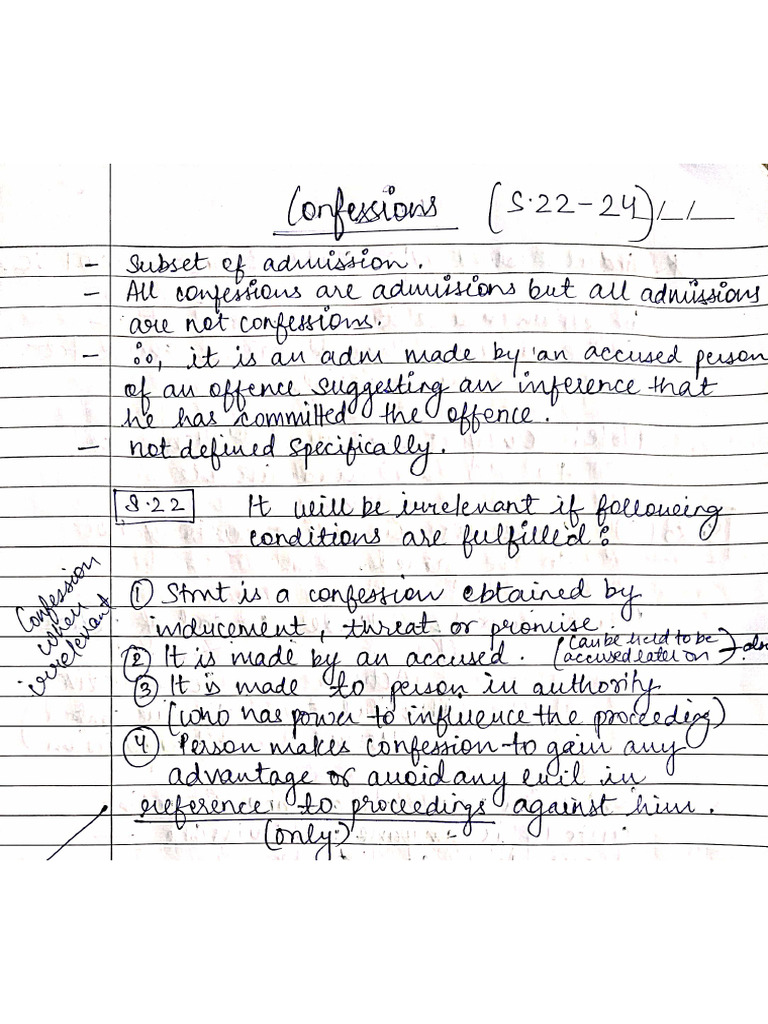 Confessions (S.22-24) / /
- Subset of admission.
- All confessions are admissions but all admissions
are not confessions.
- ∴, it is an adm made by an accused person
of an offence suggesting an inference that
he has committed the offence.
- not defined specifically.
S.22 It will be irrelevant if following
conditions are fulfilled:
Confession
when
irrelevant
① Stmt is a confession obtained by
inducement, threat or promise.
② It is made by an accused. (Can be held to be
accused later on) → also
③ It is made to person in authority
(who has power to influence the proceeding)
④ Person makes confession to gain any
advantage or avoid any evil in
reference to proceedings against him.
(only)